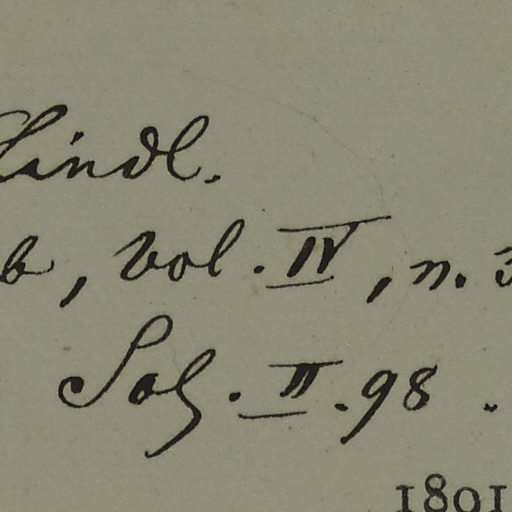 Lindl.
b, vol. IV, n. 3
Sal. II. 98.
1891